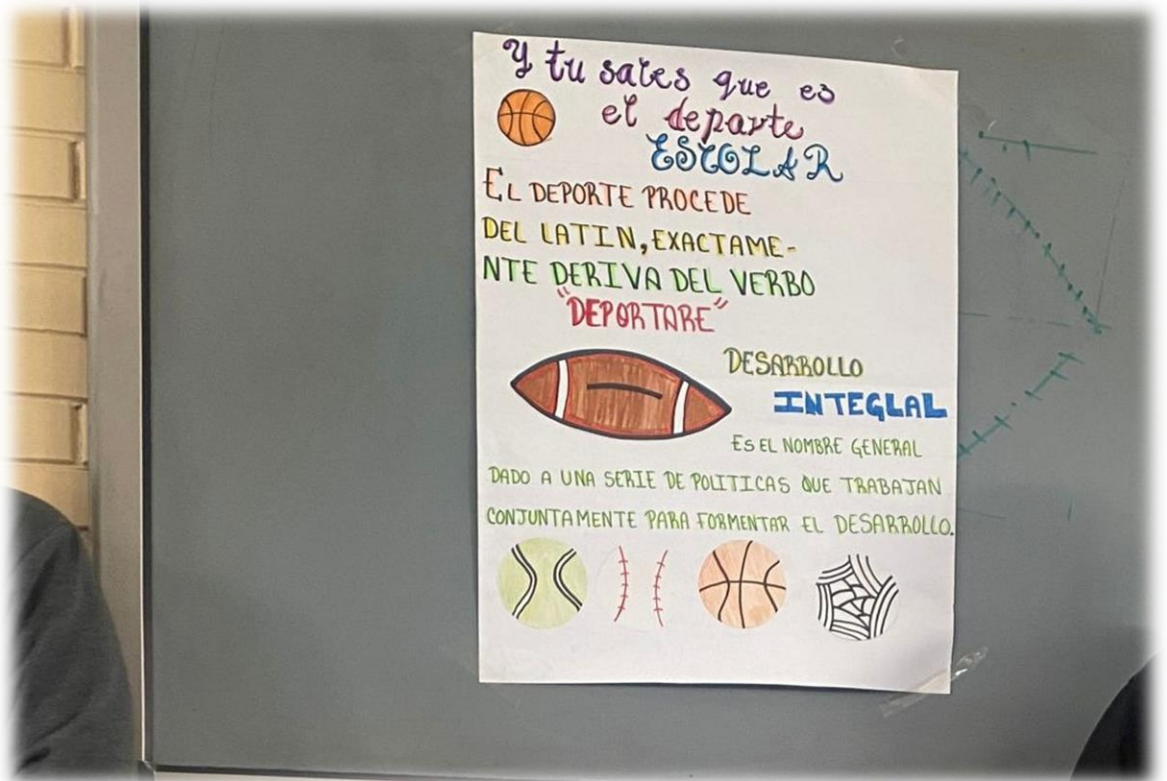 y tu sales que es
el departe
ESCOLAR
EL DEPORTE PROCEDE
DEL LATIN, EXACTAME-
NTE DERIVA DEL VERBO
"DEPORTARE"
DESARROLLO
INTEGLAL
ES EL NOMBRE GENERAL
DADO A UNA SERIE DE POLITICAS QUE TRABAJAN
CONJUNTAMENTE PARA FORMENTAR EL DESARROLLO.